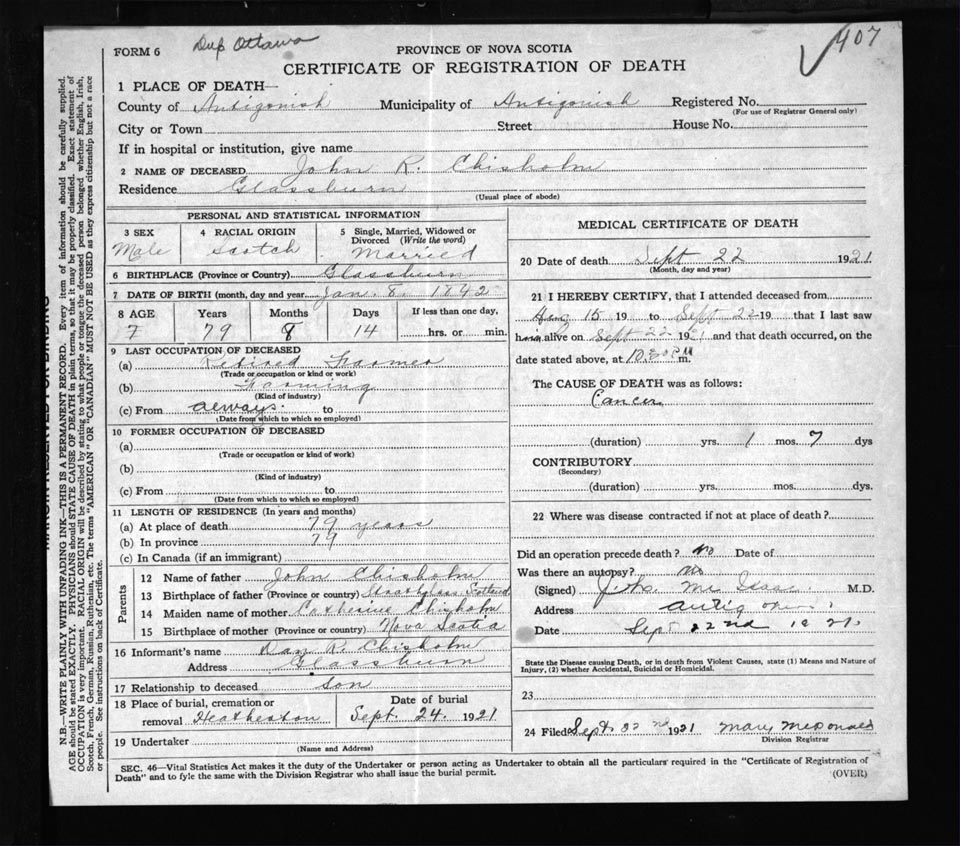 FORM 6
Dup Ottawa
407
PROVINCE OF NOVA SCOTIA
CERTIFICATE OF REGISTRATION OF DEATH
1 PLACE OF DEATH—
County of Antigonish Municipality of Antigonish Registered No.
(For use of Registrar General only)
City or Town Street House No.
If in hospital or institution, give name
2 NAME OF DECEASED John R. Chisholm
Residence Glassburn
(Usual place of abode)
PERSONAL AND STATISTICAL INFORMATION
3 SEX 4 RACIAL ORIGIN 5 Single, Married, Widowed or
Divorced (Write the word)
Male Scotch Married
6 BIRTHPLACE (Province or Country) Glassburn
7 DATE OF BIRTH (month, day and year Jan. 8. 1842
8 AGE Years Months Days If less than one day,
7 79 8 14 hrs. or min.
9 LAST OCCUPATION OF DECEASED
(a) Retired Farmer
(Trade or occupation or kind or work)
(b) Farming
(Kind of industry)
(c) From always. to
(Date from which to which so employed)
10 FORMER OCCUPATION OF DECEASED
(a)
(Trade or occupation or kind of work)
(b)
(Kind of industry)
(c) From to
(Date from which to which so employed)
11 LENGTH OF RESIDENCE (In years and months)
(a) At place of death 79 years
(b) In province 79
(c) In Canada (if an immigrant)
Parents
12 Name of father John Chisholm
13 Birthplace of father (Province or country) Strathglass Scotland
14 Maiden name of mother Catherine Chisholm
15 Birthplace of mother (Province or country) Nova Scotia
16 Informant's name Dan R. Chisholm
Address Glassburn
17 Relationship to deceased son
18 Place of burial, cremation or Date of burial
removal Heatherton Sept. 24. 1921
19 Undertaker
(Name and Address)
MEDICAL CERTIFICATE OF DEATH
20 Date of death Sept 22 1921
(Month, day and year)
21 I HEREBY CERTIFY, that I attended deceased from
Aug 15 19 to Sept 22 19 that I last saw
him alive on Sept 22 1921 and that death occurred, on the
date stated above, at 10.30 PM m.
The CAUSE OF DEATH was as follows:
Cancer
(duration) yrs. 1 mos. 7 dys
CONTRIBUTORY
(Secondary)
(duration) yrs. mos. dys.
22 Where was disease contracted if not at place of death?
Did an operation precede death? no Date of
Was there an autopsy? no
(Signed) Mc Isaac M.D.
Address Antigonish
Date Sept 22nd 1921.
State the Disease causing Death, or in death from Violent Causes, state (1) Means and Nature of
Injury, (2) whether Accidental, Suicidal or Homicidal.
23
24 Filed Sept 22nd 1921 Mary McDonald
Division Registrar
SEC. 46—Vital Statistics Act makes it the duty of the Undertaker or person acting as Undertaker to obtain all the particulars required in the "Certificate of Registration of
Death" and to fyle the same with the Division Registrar who shall issue the burial permit.
(OVER)
MARGIN RESERVED FOR BINDING
N.B.—WRITE PLAINLY WITH UNFADING INK—THIS IS A PERMANENT RECORD. Every item of information should be carefully supplied.
AGE should be stated EXACTLY. PHYSICIANS should STATE CAUSE OF DEATH in plain terms, so that it may be properly classified. Exact statement of
OCCUPATION is very important. RACIAL ORIGIN will be described by stating to what people or tongue the deceased person belonged whether English, Irish,
Scotch, French, German, Russian, Ruthenian, etc. The terms "AMERICAN" OR "CANADIAN" MUST NOT BE USED as they express citizenship but not a race
or people. See instructions on back of Certificate.